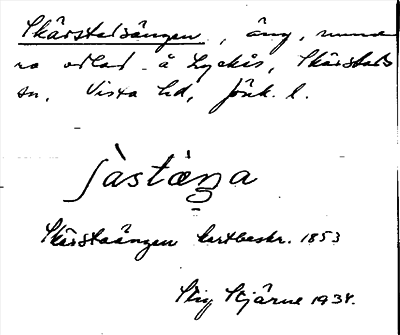 Skärstadsängen, äng, numme-
ra odlad å Lyckås, Skärstads
sn. Vista hd, Jönk. l.
ʃàstæŋa
Skärstaängen kartbeskr. 1853
Stig Stjärne 1934.